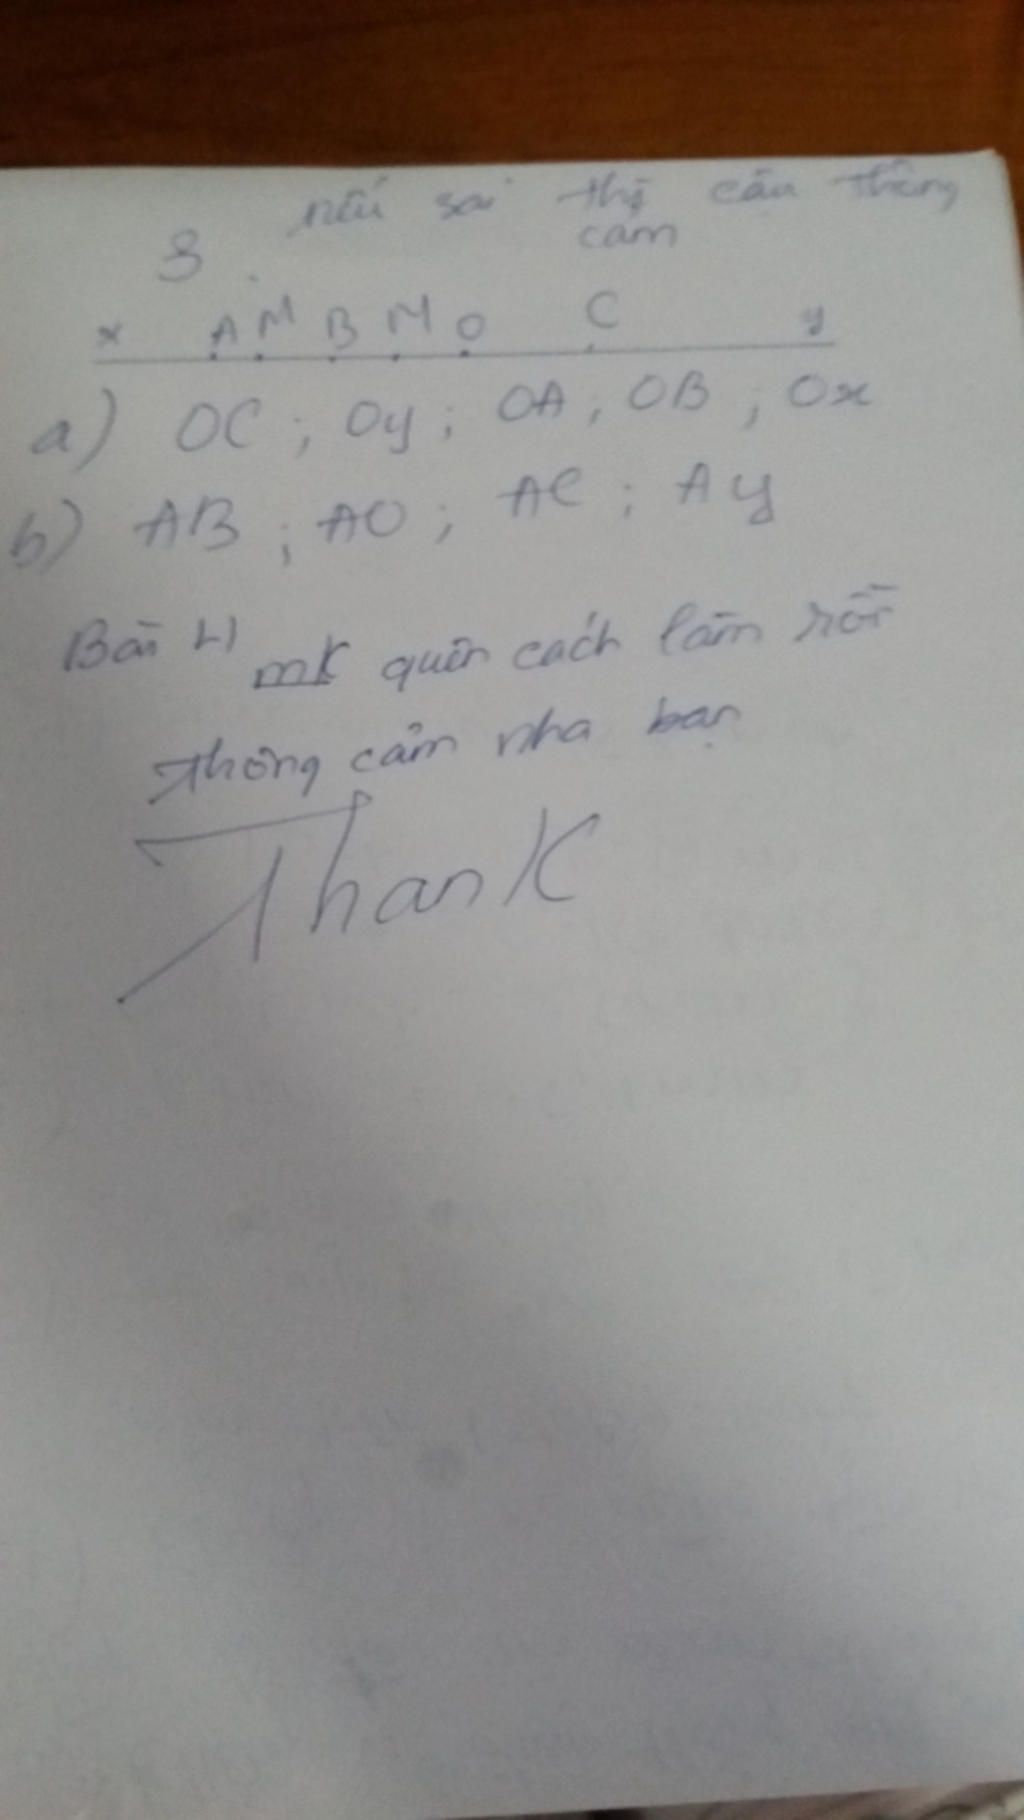 nếu sai thì cău thông
cảm
3.
x A M B M O C y
a) OC ; Oy ; OA ; OB ; Ox
b) AB ; AO ; AC ; Ay
Bài 4 mk quên cách làm rồi
thông cảm nha bạn
Thank